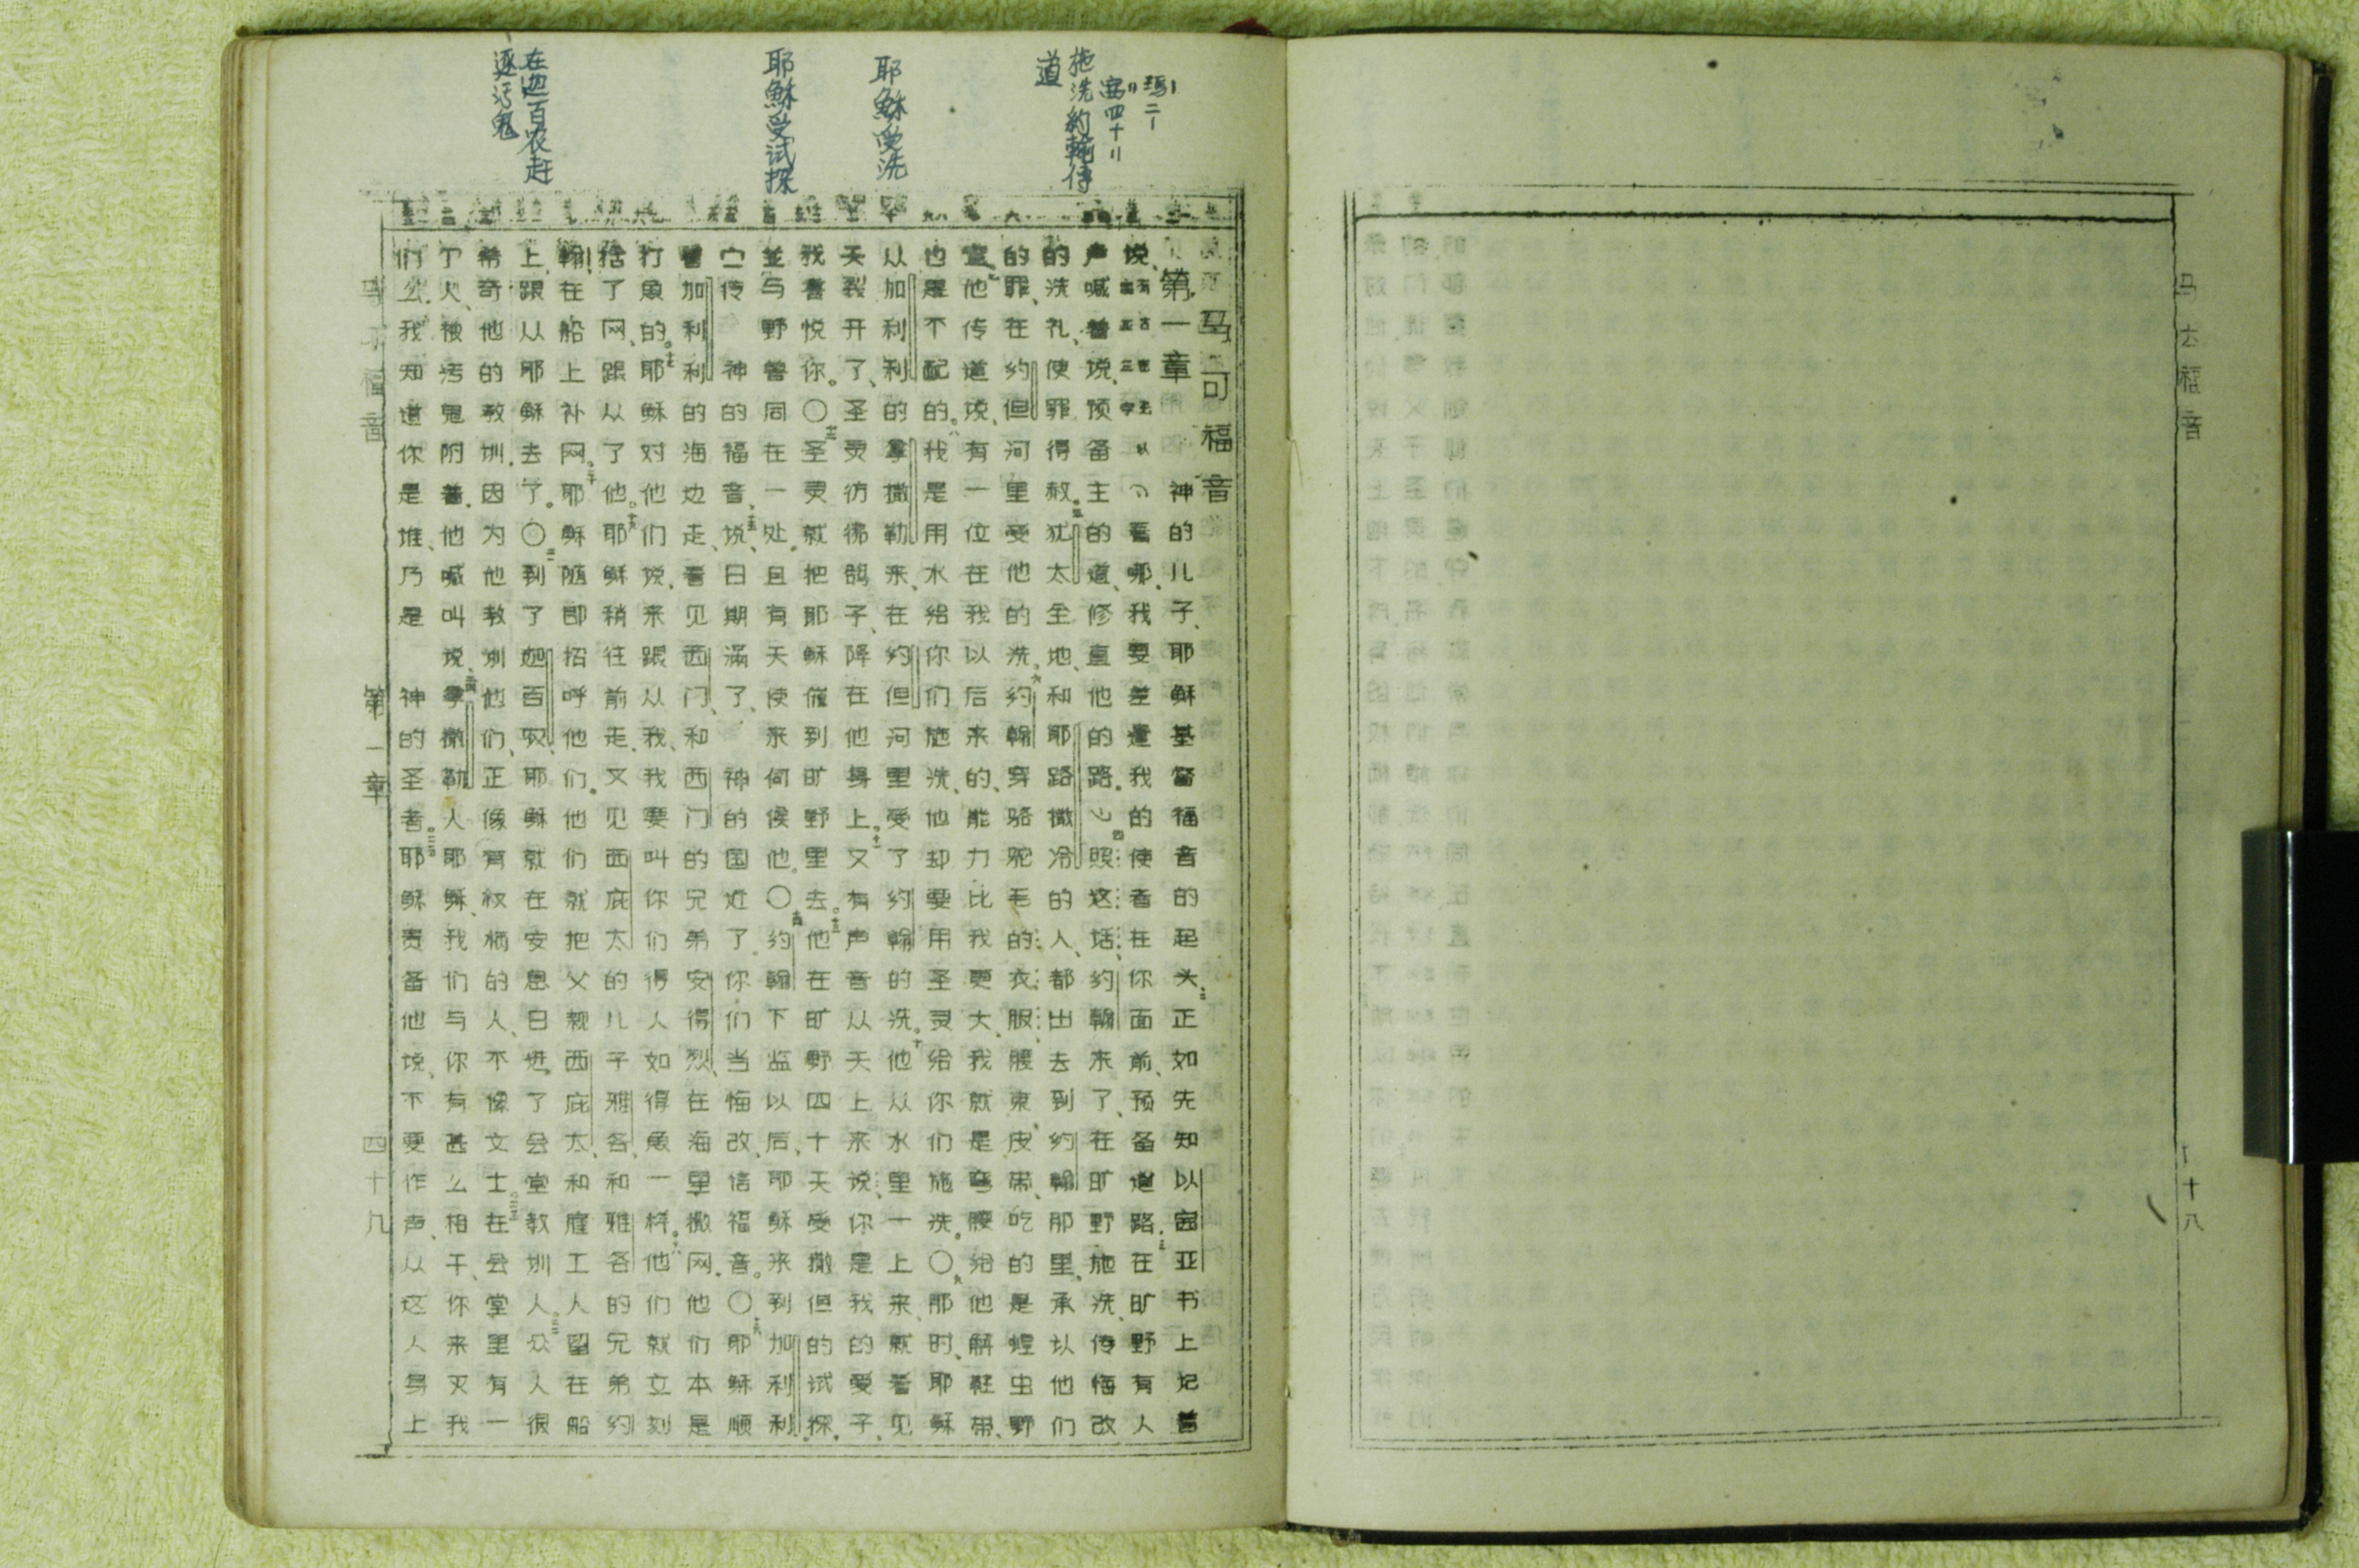 玛三1
赛四十3
施洗約翰传
道
耶穌受洗
耶穌受试探
在迦百农赶
逐污鬼
马可福音
第一章 神的儿子、耶稣基督福音的起头、二正如先知以赛亚书上记着
说、看哪、我要差遣我的使者在你面前、预备道路.三在旷野有人
声喊着说、预备主的道、修直他的路。四照这话、约翰来了、在旷野施洗、传悔改
的洗礼、使罪得赦。五犹太全地、和耶路撒冷的人、都出去到约翰那里、承认他们
的罪、在约但河里受他的洗。六约翰穿骆驼毛的衣服、腰束皮带、吃的是蝗虫野
蜜。七他传道说、有一位在我以后来的、能力比我更大、我就是弯腰给他解鞋带、
也是不配的。八我是用水给你们施洗、他却要用圣灵给你们施洗。〇九那时、耶稣
从加利利的拿撒勒来、在约但河里受了约翰的洗。十他从水里一上来、就看见
天裂开了、圣灵彷彿鸽子、降在他身上。十一又有声音从天上来说、你是我的爱子、
我喜悦你。〇十二圣灵就把耶稣催到旷野里去。十三他在旷野四十天受撒但的试探。
並与野兽同在一处。且有天使来伺候他。〇十四约翰下监以后、耶稣来到加利利、
宣传 神的福音、十五说、日期满了、 神的国近了、你们当悔改、信福音。〇十六耶稣顺
着加利利的海边走、看见西门、和西门的兄弟安得烈、在海里撒网.他们本是
打魚的。十七耶稣对他们说、来跟从我、我要叫你们得人如得魚一样。十八他们就立刻
捨了网、跟从了他。十九耶稣稍往前走、又见西庇太的儿子雅各、和雅各的兄弟约
翰在船上补网。二十耶稣随即招呼他们。他们就把父亲西庇太、和雇工人留在船
上、跟从耶稣去了。〇二一到了迦百农、耶稣就在安息日进了会堂教训人。二二众人很
希奇他的教训.因为他教训他们、正像有权柄的人、不像文士。二三在会堂里有一
个人、被污鬼附着.他喊叫说、二四拿撒勒人耶稣、我们与你有甚么相干、你来灭我
们么.我知道你是谁、乃是 神的圣者。二五耶稣责备他说、不要作声、从这人身上
马可福音 第一章 四十九
马太福音 十八